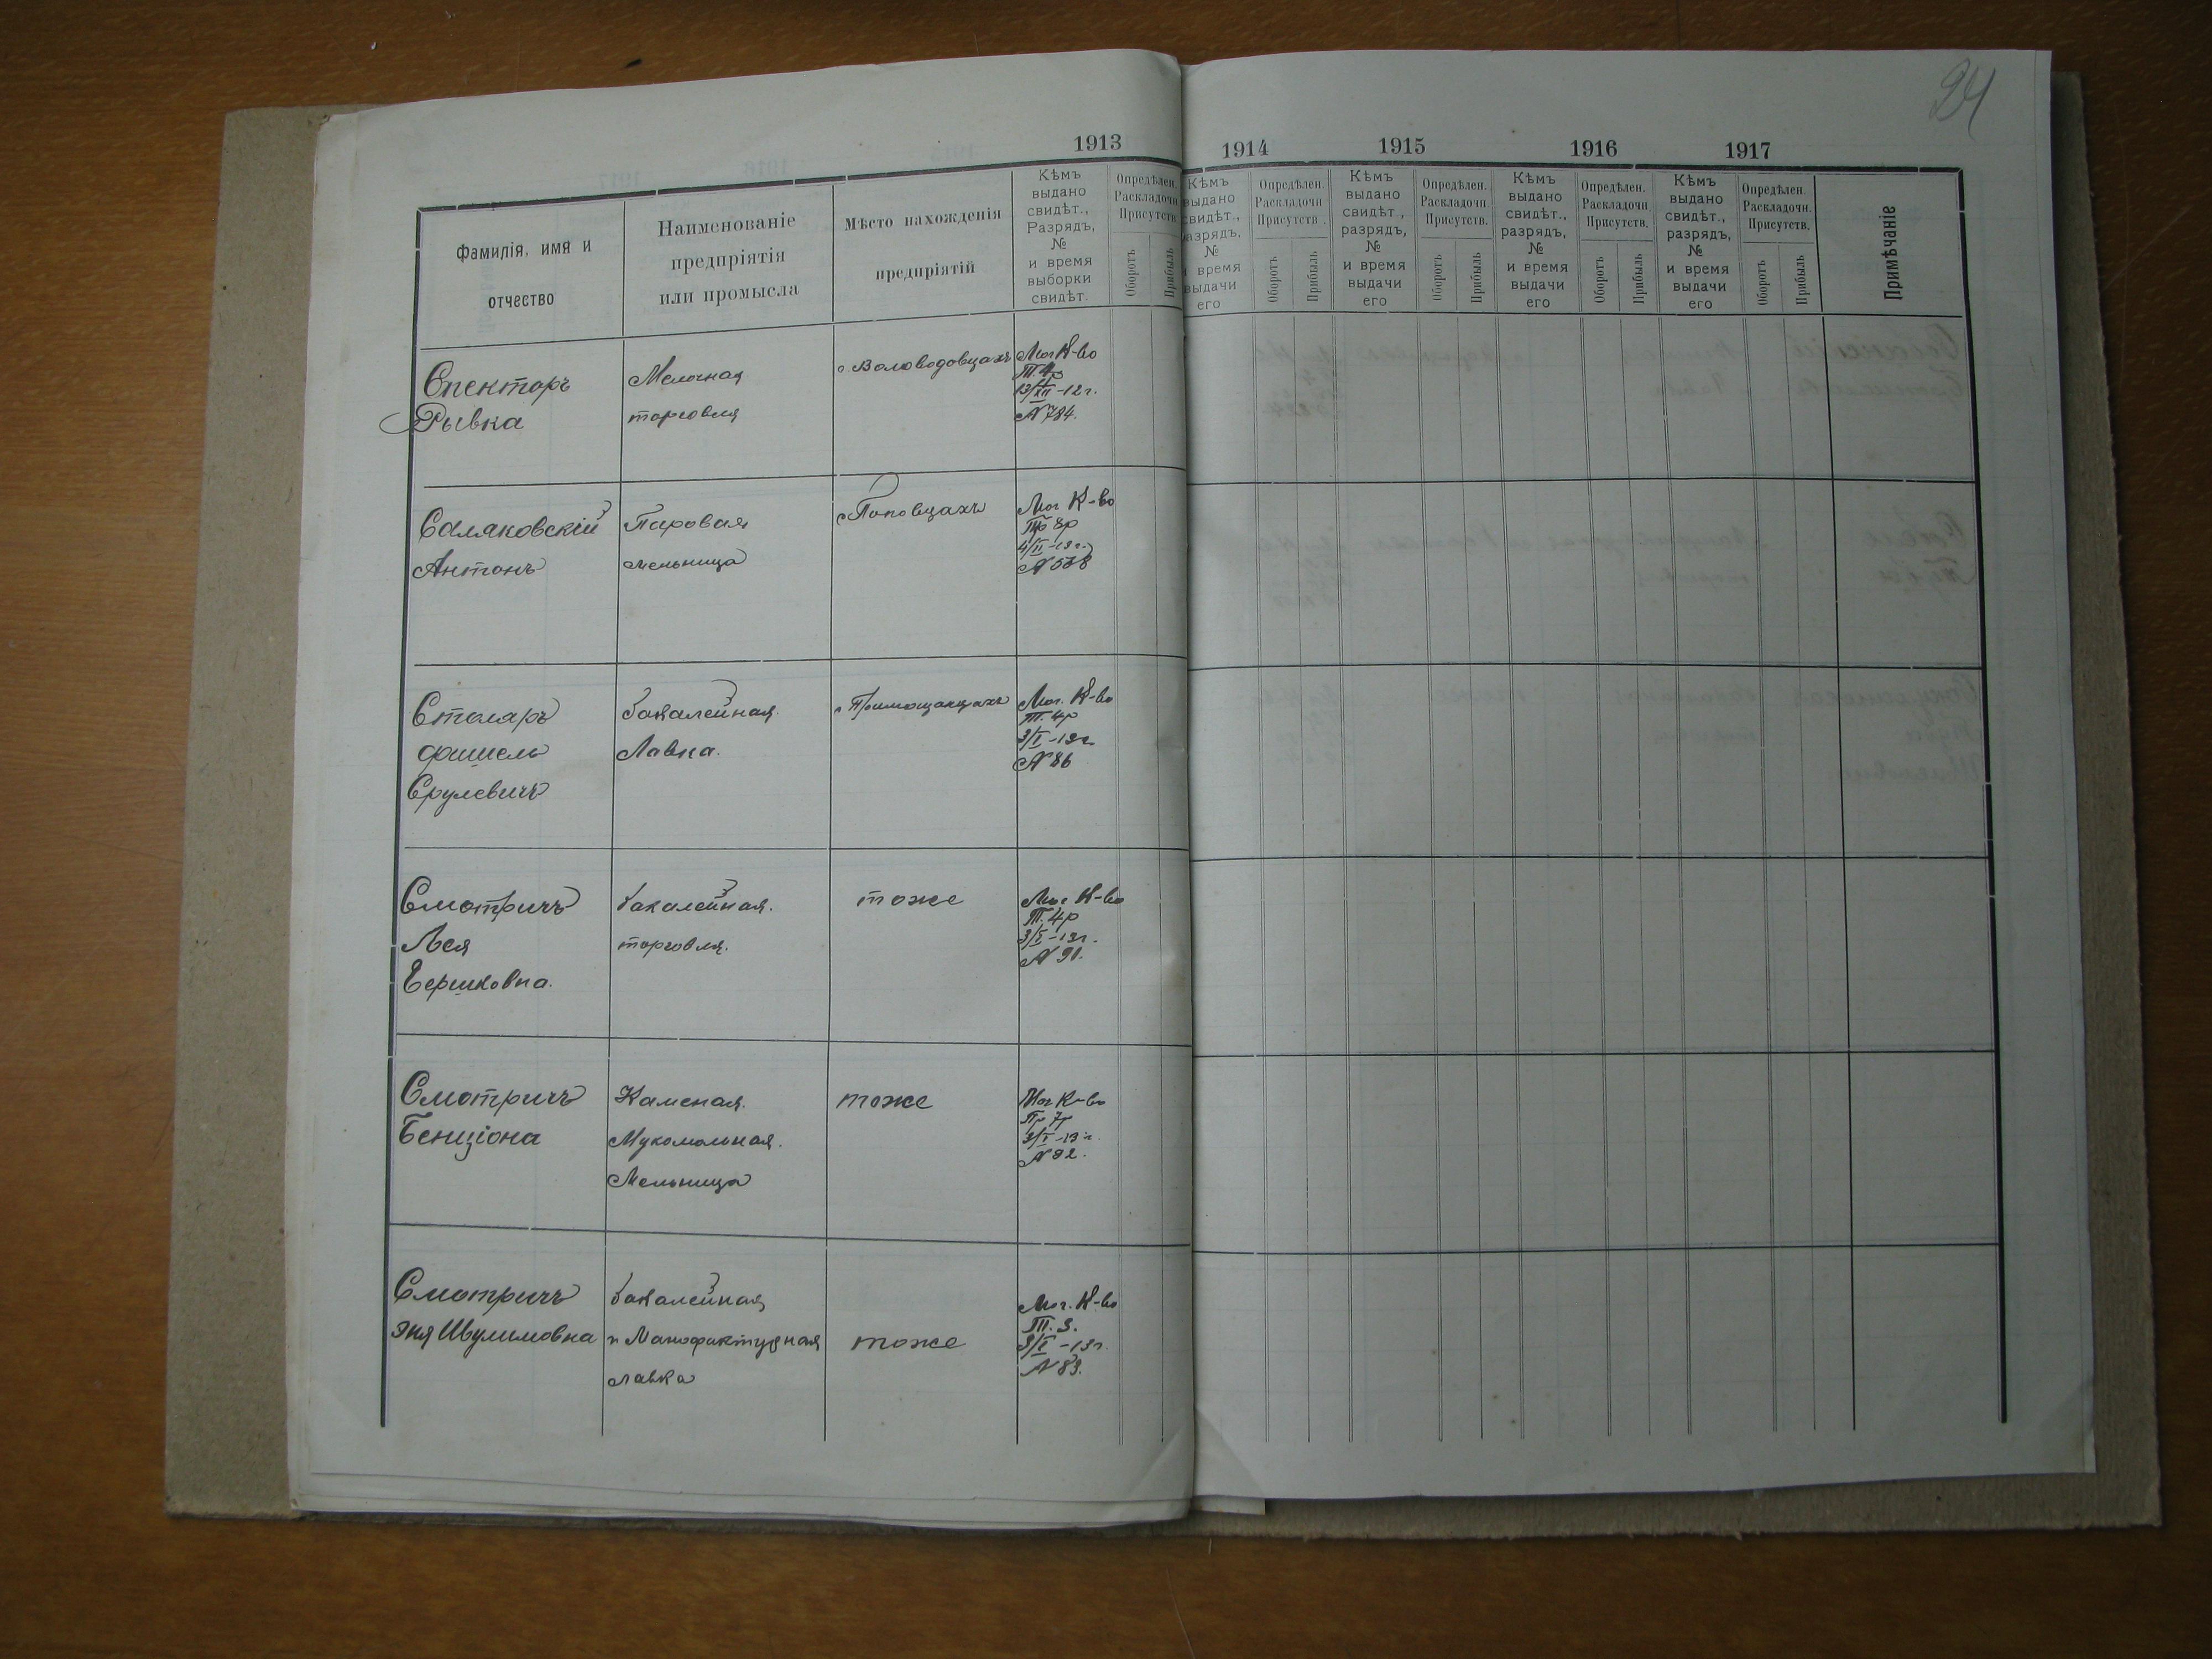 24
1913
1914
1915
1916
1917
Фамилія, имя и
отчество
Наименованіе
предпріятія
или промысла
Мѣсто нахожденія
предпріятій
Кѣмъ
выдано
свидѣт.,
Разрядъ,
№
и время
выборки
свидѣт.
Опредѣлен.
Раскладочн
Присутств.
Оборотъ
Прибыль
Кѣмъ
выдано
свидѣт.,
разрядъ,
№
и время
выдачи
его
Опредѣлен.
Раскладочн
Присутств.
Оборотъ
Прибыль
Кѣмъ
выдано
свидѣт.,
разрядъ,
№
и время
выдачи
его
Опредѣлен.
Раскладочн.
Присутств.
Оборотъ
Прибыль
Кѣмъ
выдано
свидѣт.,
разрядъ,
№
и время
выдачи
его
Опредѣлен.
Раскладочн.
Присутств.
Оборотъ
Прибыль
Кѣмъ
выдано
свидѣт.,
разрядъ,
№
и время
выдачи
его
Опредѣлен.
Раскладочн.
Присутств.
Оборотъ
Прибыль
Примѣчаніе
Спекторъ
Рывка
Мелочная
торговля
с Воловодовцахъ
Мог К-во
Т. 4р
13/XII-12 г.
N 784.
Саляковскій
Антонъ
Паровая
мельница
с Поповцахъ
Мог К-во
Пр 8р
4/II-13 г.
N 538
Столяръ
Фишель
Срулевичъ
бакалейная
Лавка.
Мог. К-во
Т. 4р
3/I-13 г.
N 86
Смотричъ
Лея
Гершковна.
бакалейная.
торговля.
тоже
Мог К-во
Т. 4р
3/I-13 г.
N 91.
Смотричъ
Бенціона
Каменая.
Мукомольная.
Мельница
тоже
Мог К-во
Пр 7р
3/I-13 г.
N 92.
Смотричъ
Эня Шулимовна
бакалейная
и Манофактурная
лавка
тоже
Мог. К-во
Т. 3.
3/I-13 г.
N 83.